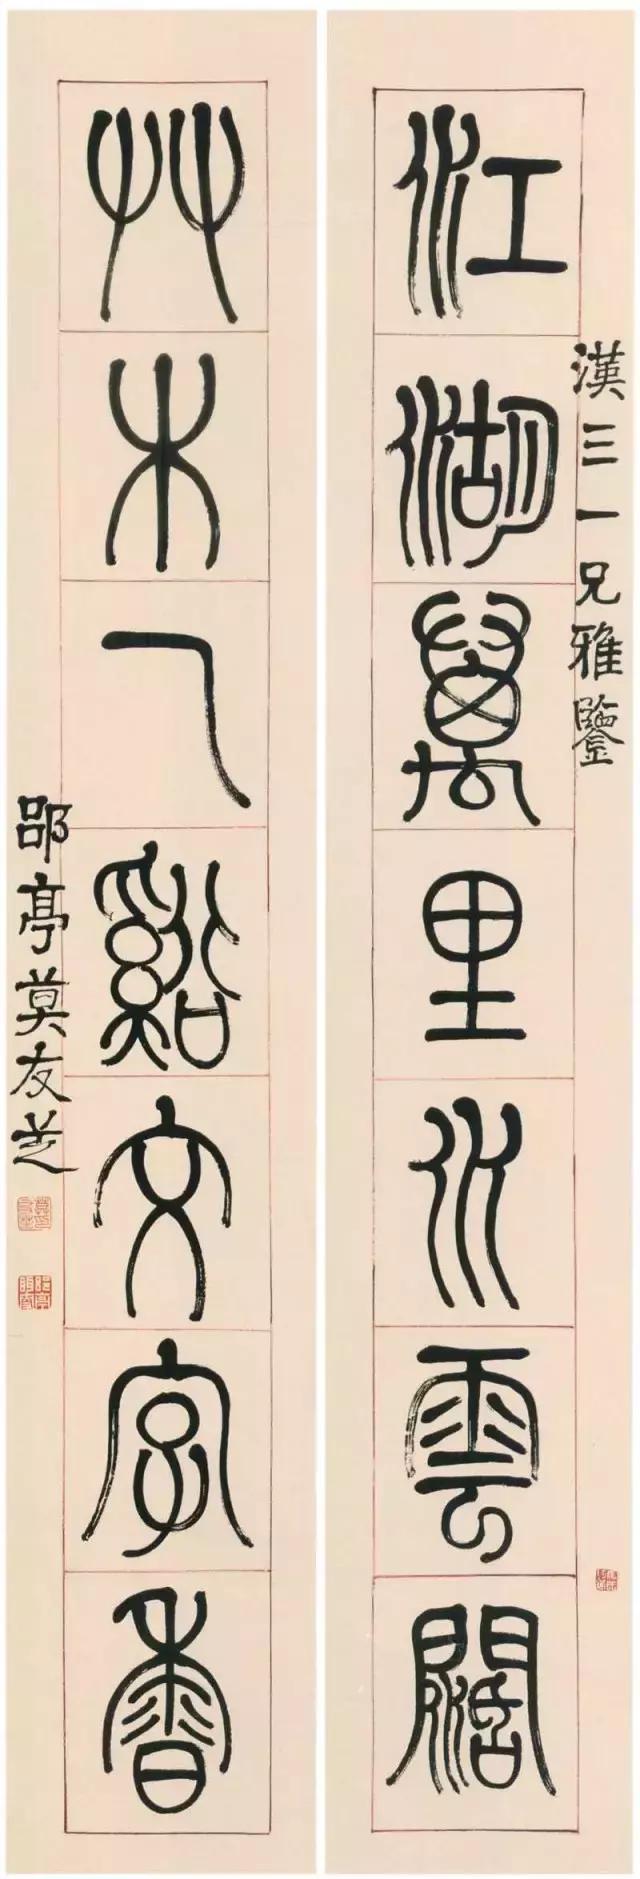 漢三一兄雅鑒
江湖萬里水雲闊
艸木一谿文字香
郘亭莫友芝